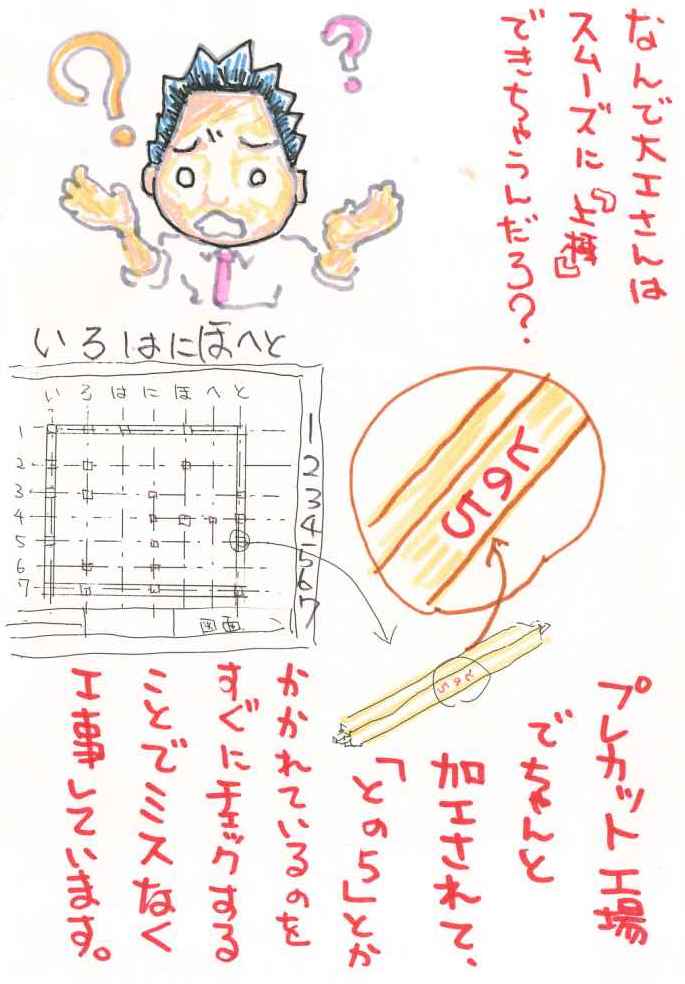 なんで大工さんは
スムーズに『上棟』
できちゃうんだろ?
? ?
いろはにほへと
いろはにほへと
1
2
3
4
5
6
7
1
2
3
4
5
6
7
図面
との5
との5
プレカット工場
でちゃんと
加工されて、
「との5」とか
かかれているのを
すぐにチェックする
ことでミスなく
工事しています。